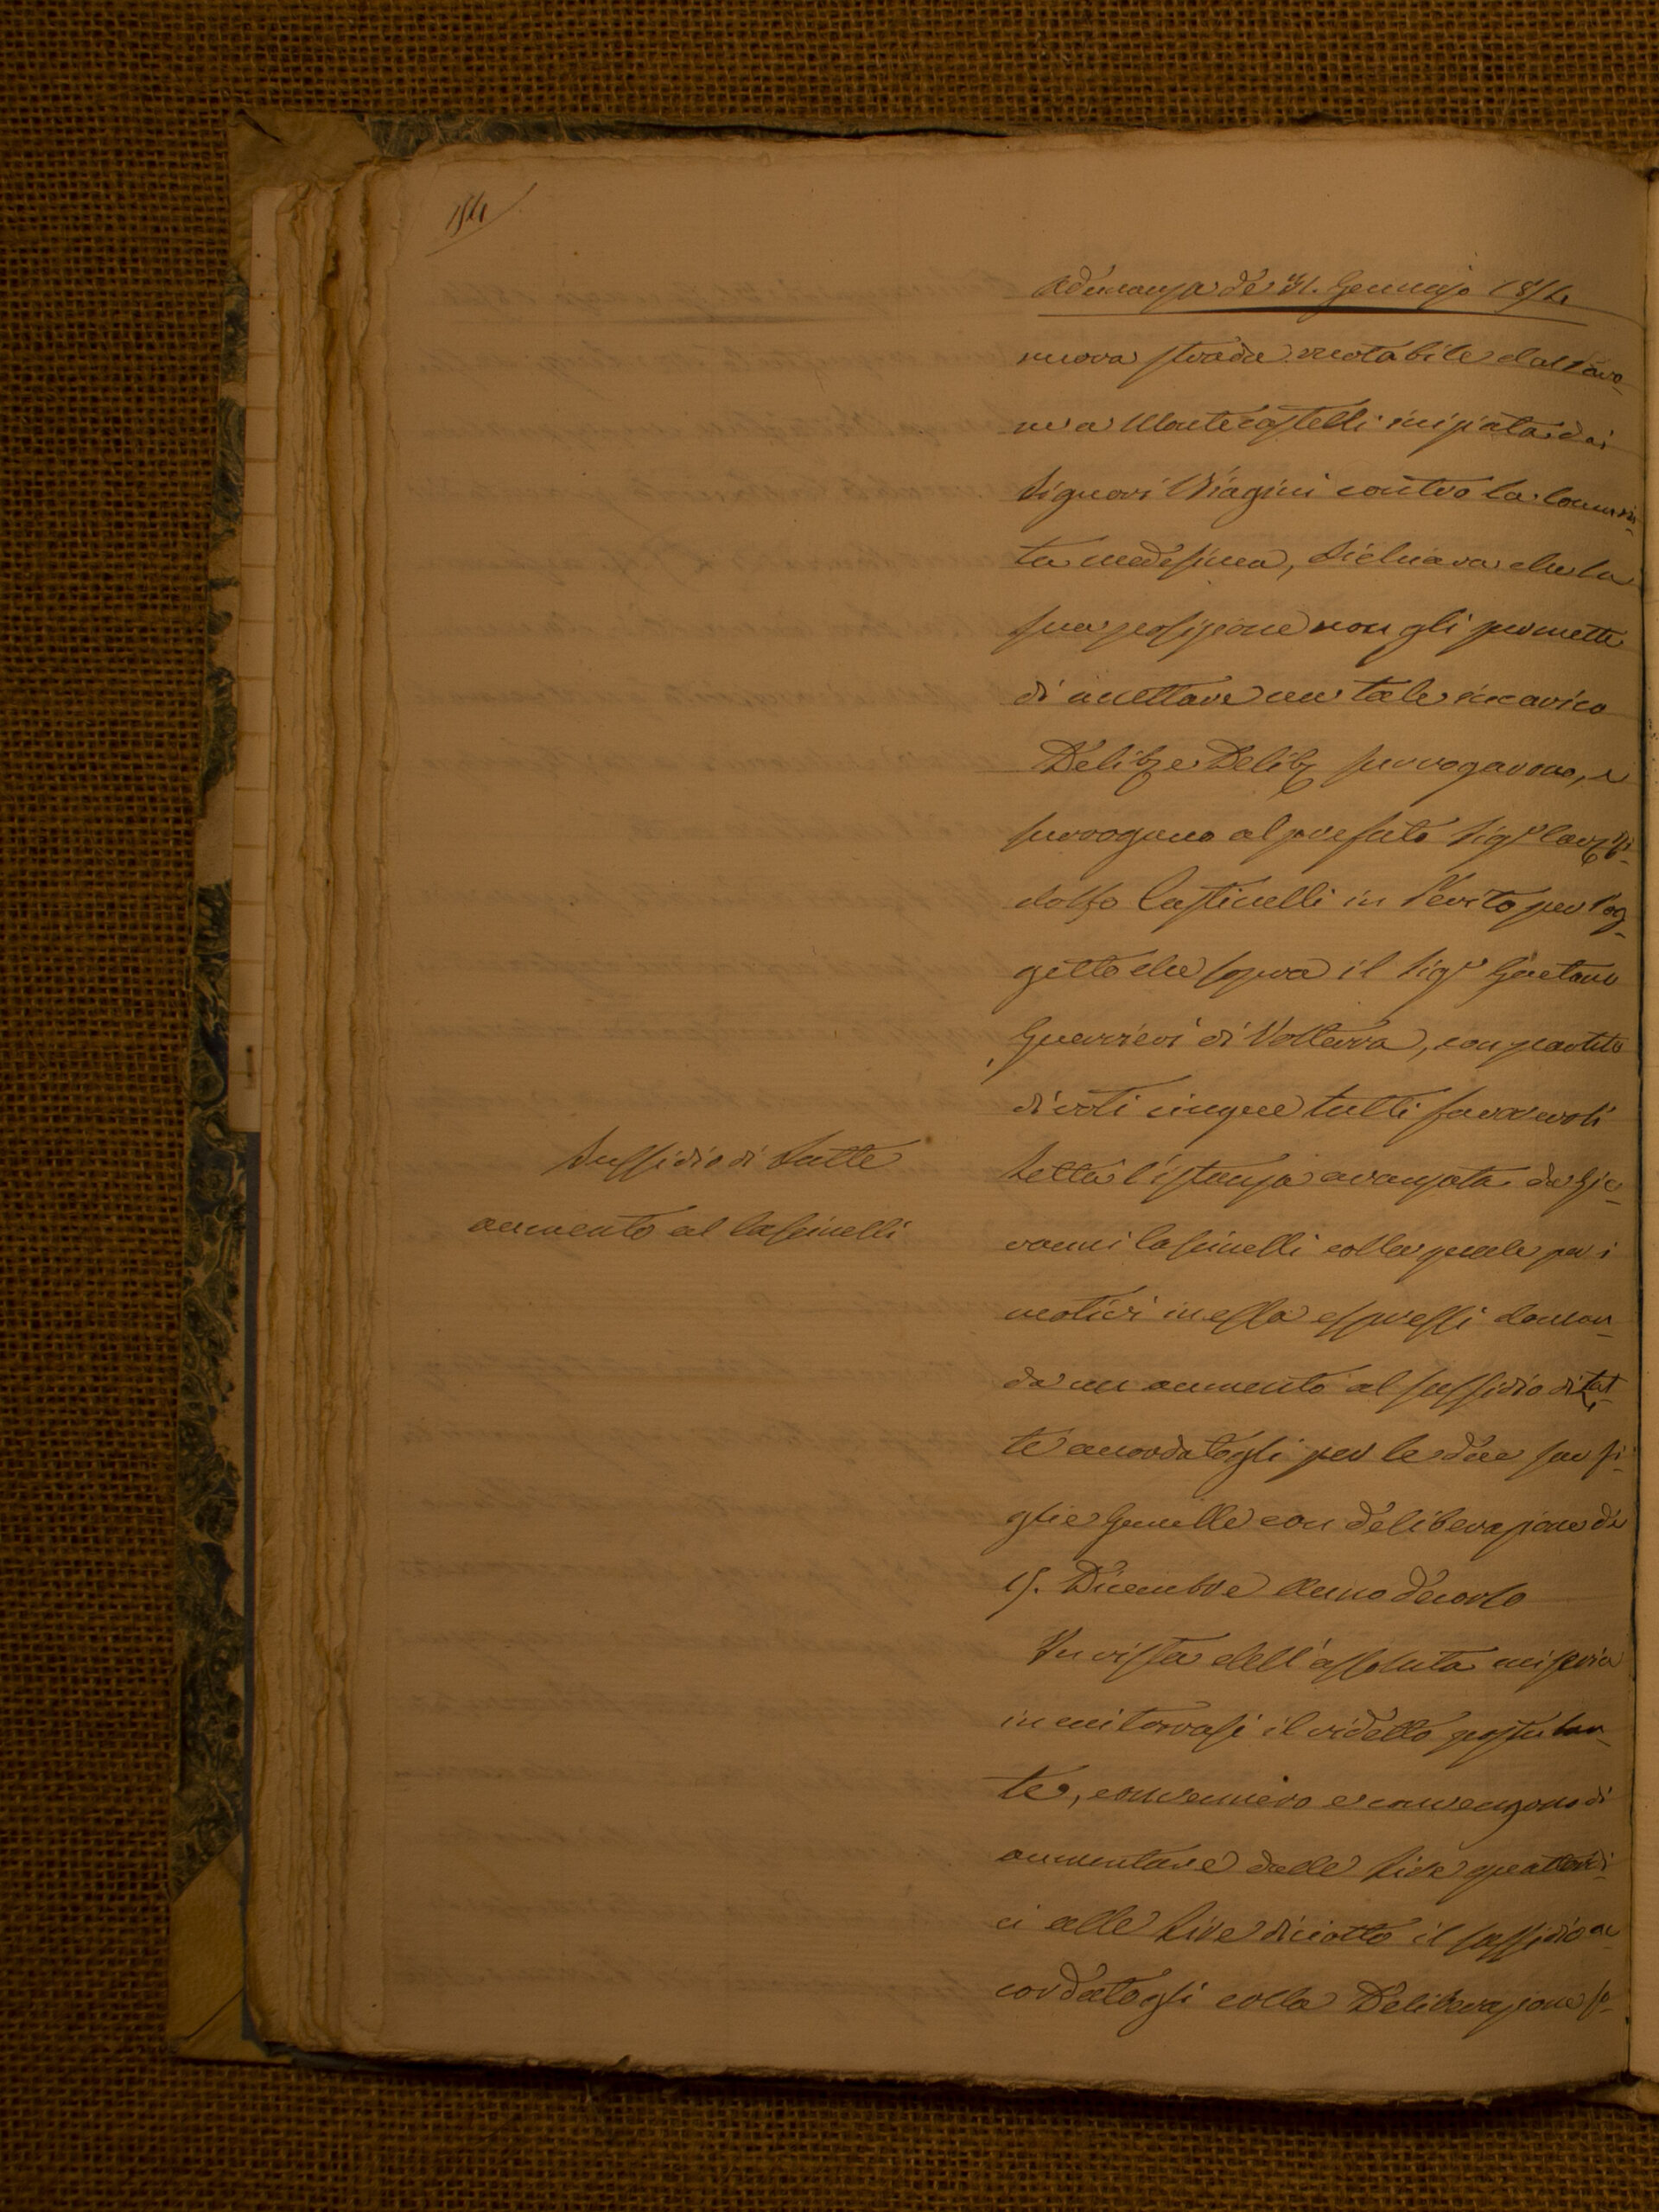 Adunanza de' 31. Gennajo 1854
nuova strada ruotabile dal Pavo-
ne a Montecastelli inizata dai
Signori Biagini contro la Comuni-
tà medesima, dichiara che la
sua posizione non gli permette
di accettare un tale incarico
Delib: e Delib: surrogarono, e
surrogano al prefato Sig.r Cav:
dolfo Castinelli in Perito per l'og-
getto che sopra il Sig.r Gaetano
Guerrieri di Volterra, con partito
di voti cinque tutti favorevoli
Sussidio di Latte
aumento al Cascinelli
Letta l'istanza avanzata da Gio-
vanni Cascinelli colla quale per i
motivi in essa espressi doman-
da un aumento al sussidio di lat-
te accordatogli per le due sue fi-
glie Gemelle con deliberazione de
15. Dicembre Anno decorso
In vista dell'assoluta miseria
in cui trovasi il ridetto postulan-
te, convennero e convengono di
aumentare dalle Lire quattordi-
ci alle Lire diciotto il sussidio ac-
cordatogli colla Deliberazione so-